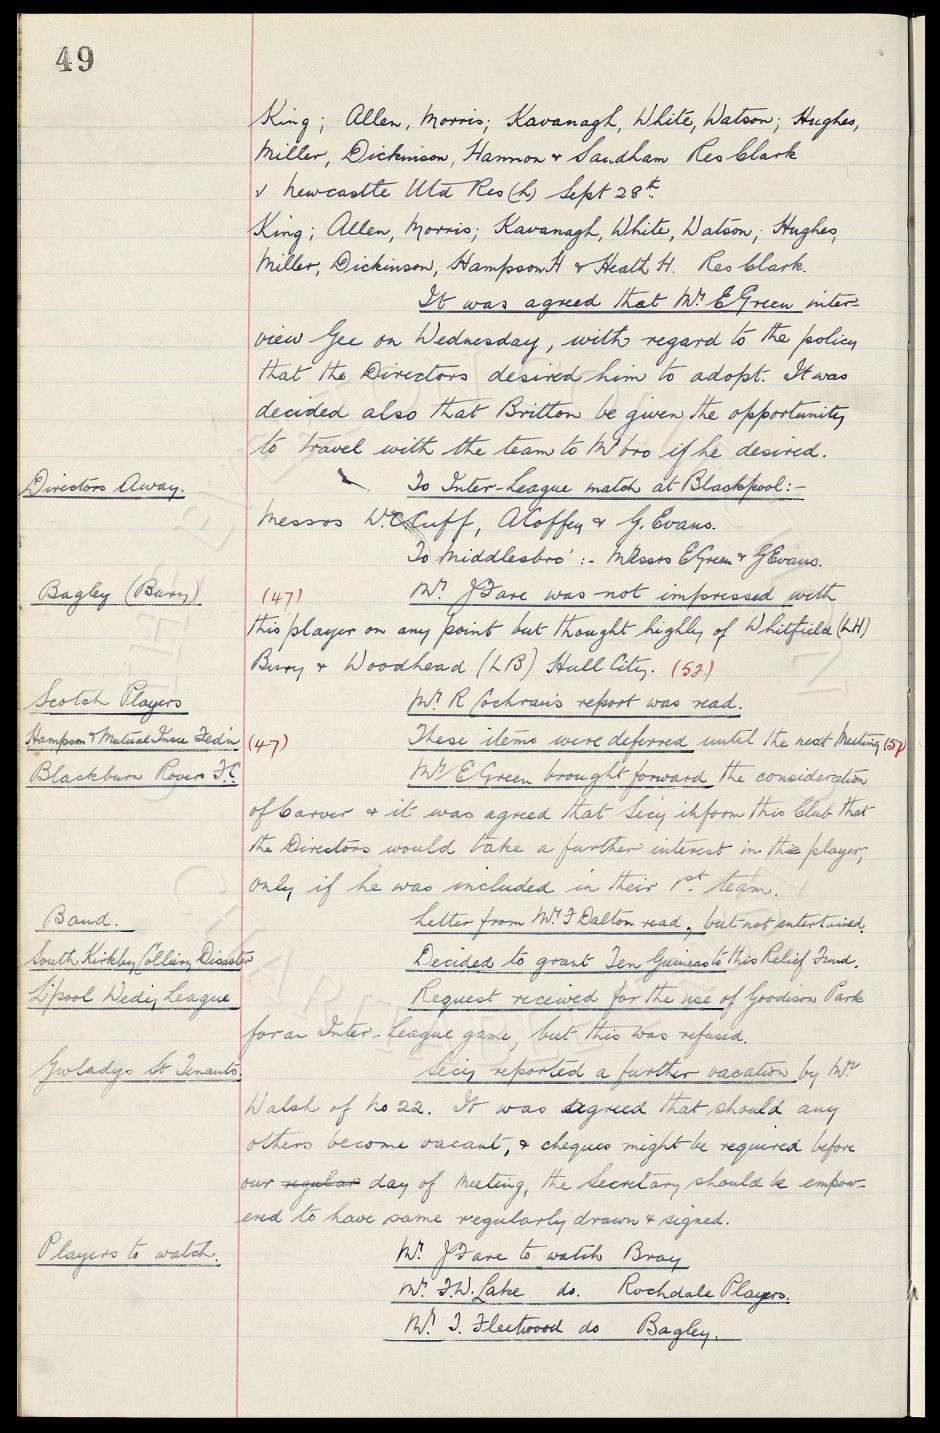 49
King; Allen, Morris; Kavanagh, White, Watson; Hughes,
Miller, Dickinson, Hannon & Sandham Res Clark
v Newcastle Utd Res (L) Sept 28th.
King; Allen, Morris; Kavanagh, White, Watson; Hughes,
Miller, Dickinson, Hampson H & Heath H. Res Clark.
It was agreed that Mr. E Green inter-
view Gee on Wednesday, with regard to the policy
that the Directors desired him to adopt. It was
decided also that Britton be given the opportunity
to travel with the team to M'bro if he desired.
Directors Away. To Inter-League match at Blackpool:-
Messrs W.C. Cuff, A Coffey & G. Evans.
To Middlesbro':- Messrs E Green & G Evans.
Bagley (Bury) (47) Mr. J Fare was not impressed with
this player on any point but thought highly of Whitfield (LH)
Bury & Woodhead (LB) Hull City. (52)
Scotch Players Mr. R Cochran's report was read.
Hampson & Mutual Insce Fed'n (47) These items were deferred until the next Meeting
Blackburn Rovers F.C Mr E Green brought forward the consideration
of Carver & it was agreed that Secy inform this Club that
the Directors would take a further interest in this player,
only if he was included in their 1st. team.
Band. Letter from Mr F Dalton read, but not entertained.
South Kirkby Colliery Disaster Decided to grant Ten Guineas to this Relief Fund.
L'pool Wedy League Request received for the use of Goodison Park
for an Inter-League game, but this was refused.
Gwladys St Tenants. Secy reported a further vacation by Mr
Walsh of No 22. It was agreed that should any
others become vacant, & cheques might be required before
our regular day of Meeting, the Secretary should be empow-
ered to have same regularly drawn & signed.
Players to watch. Mr. J Fare to watch Bray
Mr. F.W. Lake do. Rochdale Players.
Mr. T. Fleetwood do Bagley.